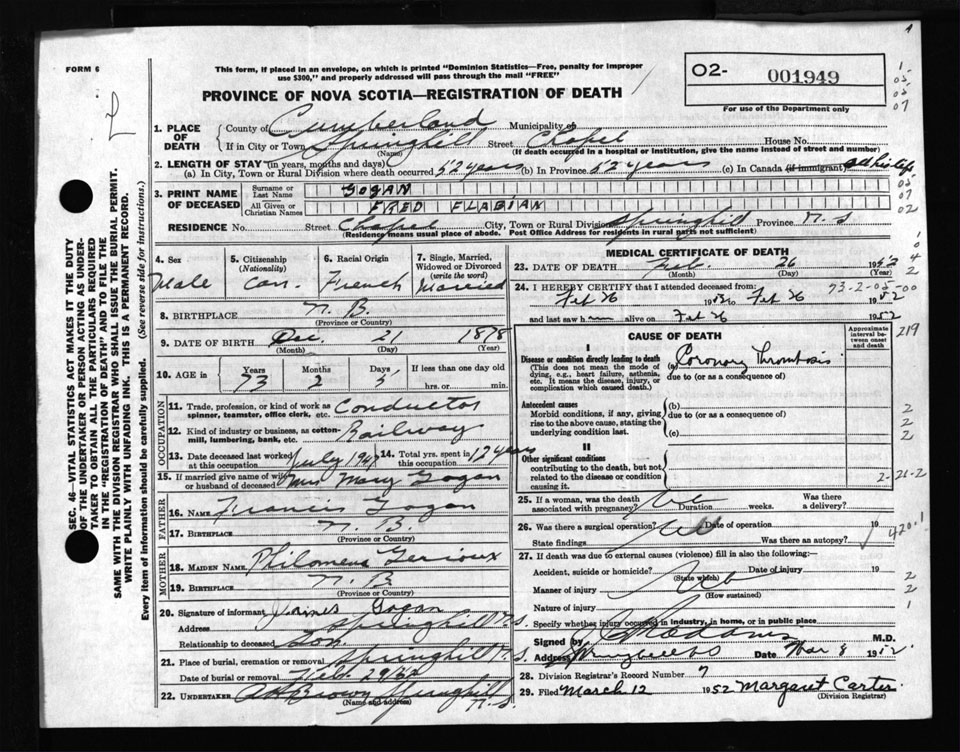 FORM 6
This form, if placed in an envelope, on which is printed "Dominion Statistics—Free, penalty for improper
use $300," and properly addressed will pass through the mail "FREE"
PROVINCE OF NOVA SCOTIA—REGISTRATION OF DEATH
02- 001949
For use of the Department only
1. PLACE OF DEATH
County of Cumberland Municipality of
If in City or Town Springhill Street Chapel House No.
(Name) (If death occurred in a hospital or institution, give the name instead of street and number)
2. LENGTH OF STAY (in years, months and days)
(a) In City, Town or Rural Division where death occurred 52 years (b) In Province 52 years (c) In Canada (if immigrant) all his life
3. PRINT NAME OF DECEASED
Surname or Last Name GOGAN
All Given or Christian Names FRED FLABIAN
RESIDENCE No. Street Chapel City, Town or Rural Division Springhill Province N.S
(Residence means usual place of abode. Post Office Address for residents in rural parts not sufficient)
4. Sex Male
5. Citizenship (Nationality) Can.
6. Racial Origin French
7. Single, Married, Widowed or Divorced (write the word) Married
8. BIRTHPLACE N. B.
(Province or Country)
9. DATE OF BIRTH Dec. 21 1878
(Month) (Day) (Year)
10. AGE in Years 73 Months 2 Days 5 If less than one day old hrs. or min.
OCCUPATION
11. Trade, profession, or kind of work as spinner, teamster, office clerk, etc. Conductor
12. Kind of industry or business, as cotton-mill, lumbering, bank, etc. Railway
13. Date deceased last worked at this occupation July 1947 14. Total yrs. spent in this occupation 12 years
15. If married give name of wife or husband of deceased Mrs Mary Gogan
FATHER
16. NAME Francis Gogan
17. BIRTHPLACE N. B.
(Province or Country)
MOTHER
18. MAIDEN NAME Philomene
19. BIRTHPLACE N. B
(Province or Country)
20. Signature of informant James Gogan
Address Springhill N.S.
Relationship to deceased Son
21. Place of burial, cremation or removal Springhill N.S.
Date of burial or removal Feb. 29/52
22. UNDERTAKER Brown Springhill N.S.
(Name and address)
MEDICAL CERTIFICATE OF DEATH
23. DATE OF DEATH Feb. 26 1952
(Month) (Day) (Year)
24. I HEREBY CERTIFY that I attended deceased from: 73-2-05-00
Feb 26 1952 to Feb 26 1952
and last saw him alive on Feb 26 1952
CAUSE OF DEATH
Approximate interval between onset and death
I
Disease or condition directly leading to death
(This does not mean the mode of dying, e.g., heart failure, asthenia, etc. It means the disease, injury, or complication which caused death.)
(a) Coronary Thrombosis
due to (or as a consequence of)
Antecedent causes
Morbid conditions, if any, giving rise to the above cause, stating the underlying condition last.
(b)
due to (or as a consequence of)
(c)
II
Other significant conditions
contributing to the death, but not related to the disease or condition causing it.
25. If a woman, was the death associated with pregnancy? Duration weeks. Was there a delivery?
26. Was there a surgical operation? Date of operation 19
State findings Was there an autopsy?
27. If death was due to external causes (violence) fill in also the following:—
Accident, suicide or homicide? Date of injury 19
(State which)
Manner of injury
(How sustained)
Nature of injury
Specify whether injury occurred in industry, in home, or in public place
Signed by M.D.
Address Springhill NS Date Mar 8 1952
28. Division Registrar's Record Number 7
29. Filed March 12 1952 Margaret Carter
(Division Registrar)
219
420.1
SEC. 46—VITAL STATISTICS ACT MAKES IT THE DUTY
OF THE UNDERTAKER OR PERSON ACTING AS UNDER-
TAKER TO OBTAIN ALL THE PARTICULARS REQUIRED
IN THE "REGISTRATION OF DEATH" AND TO FILE THE
SAME WITH THE DIVISION REGISTRAR WHO SHALL ISSUE THE BURIAL PERMIT.
WRITE PLAINLY WITH UNFADING INK. THIS IS A PERMANENT RECORD.
Every item of information should be carefully supplied. (See reverse side for instructions.)